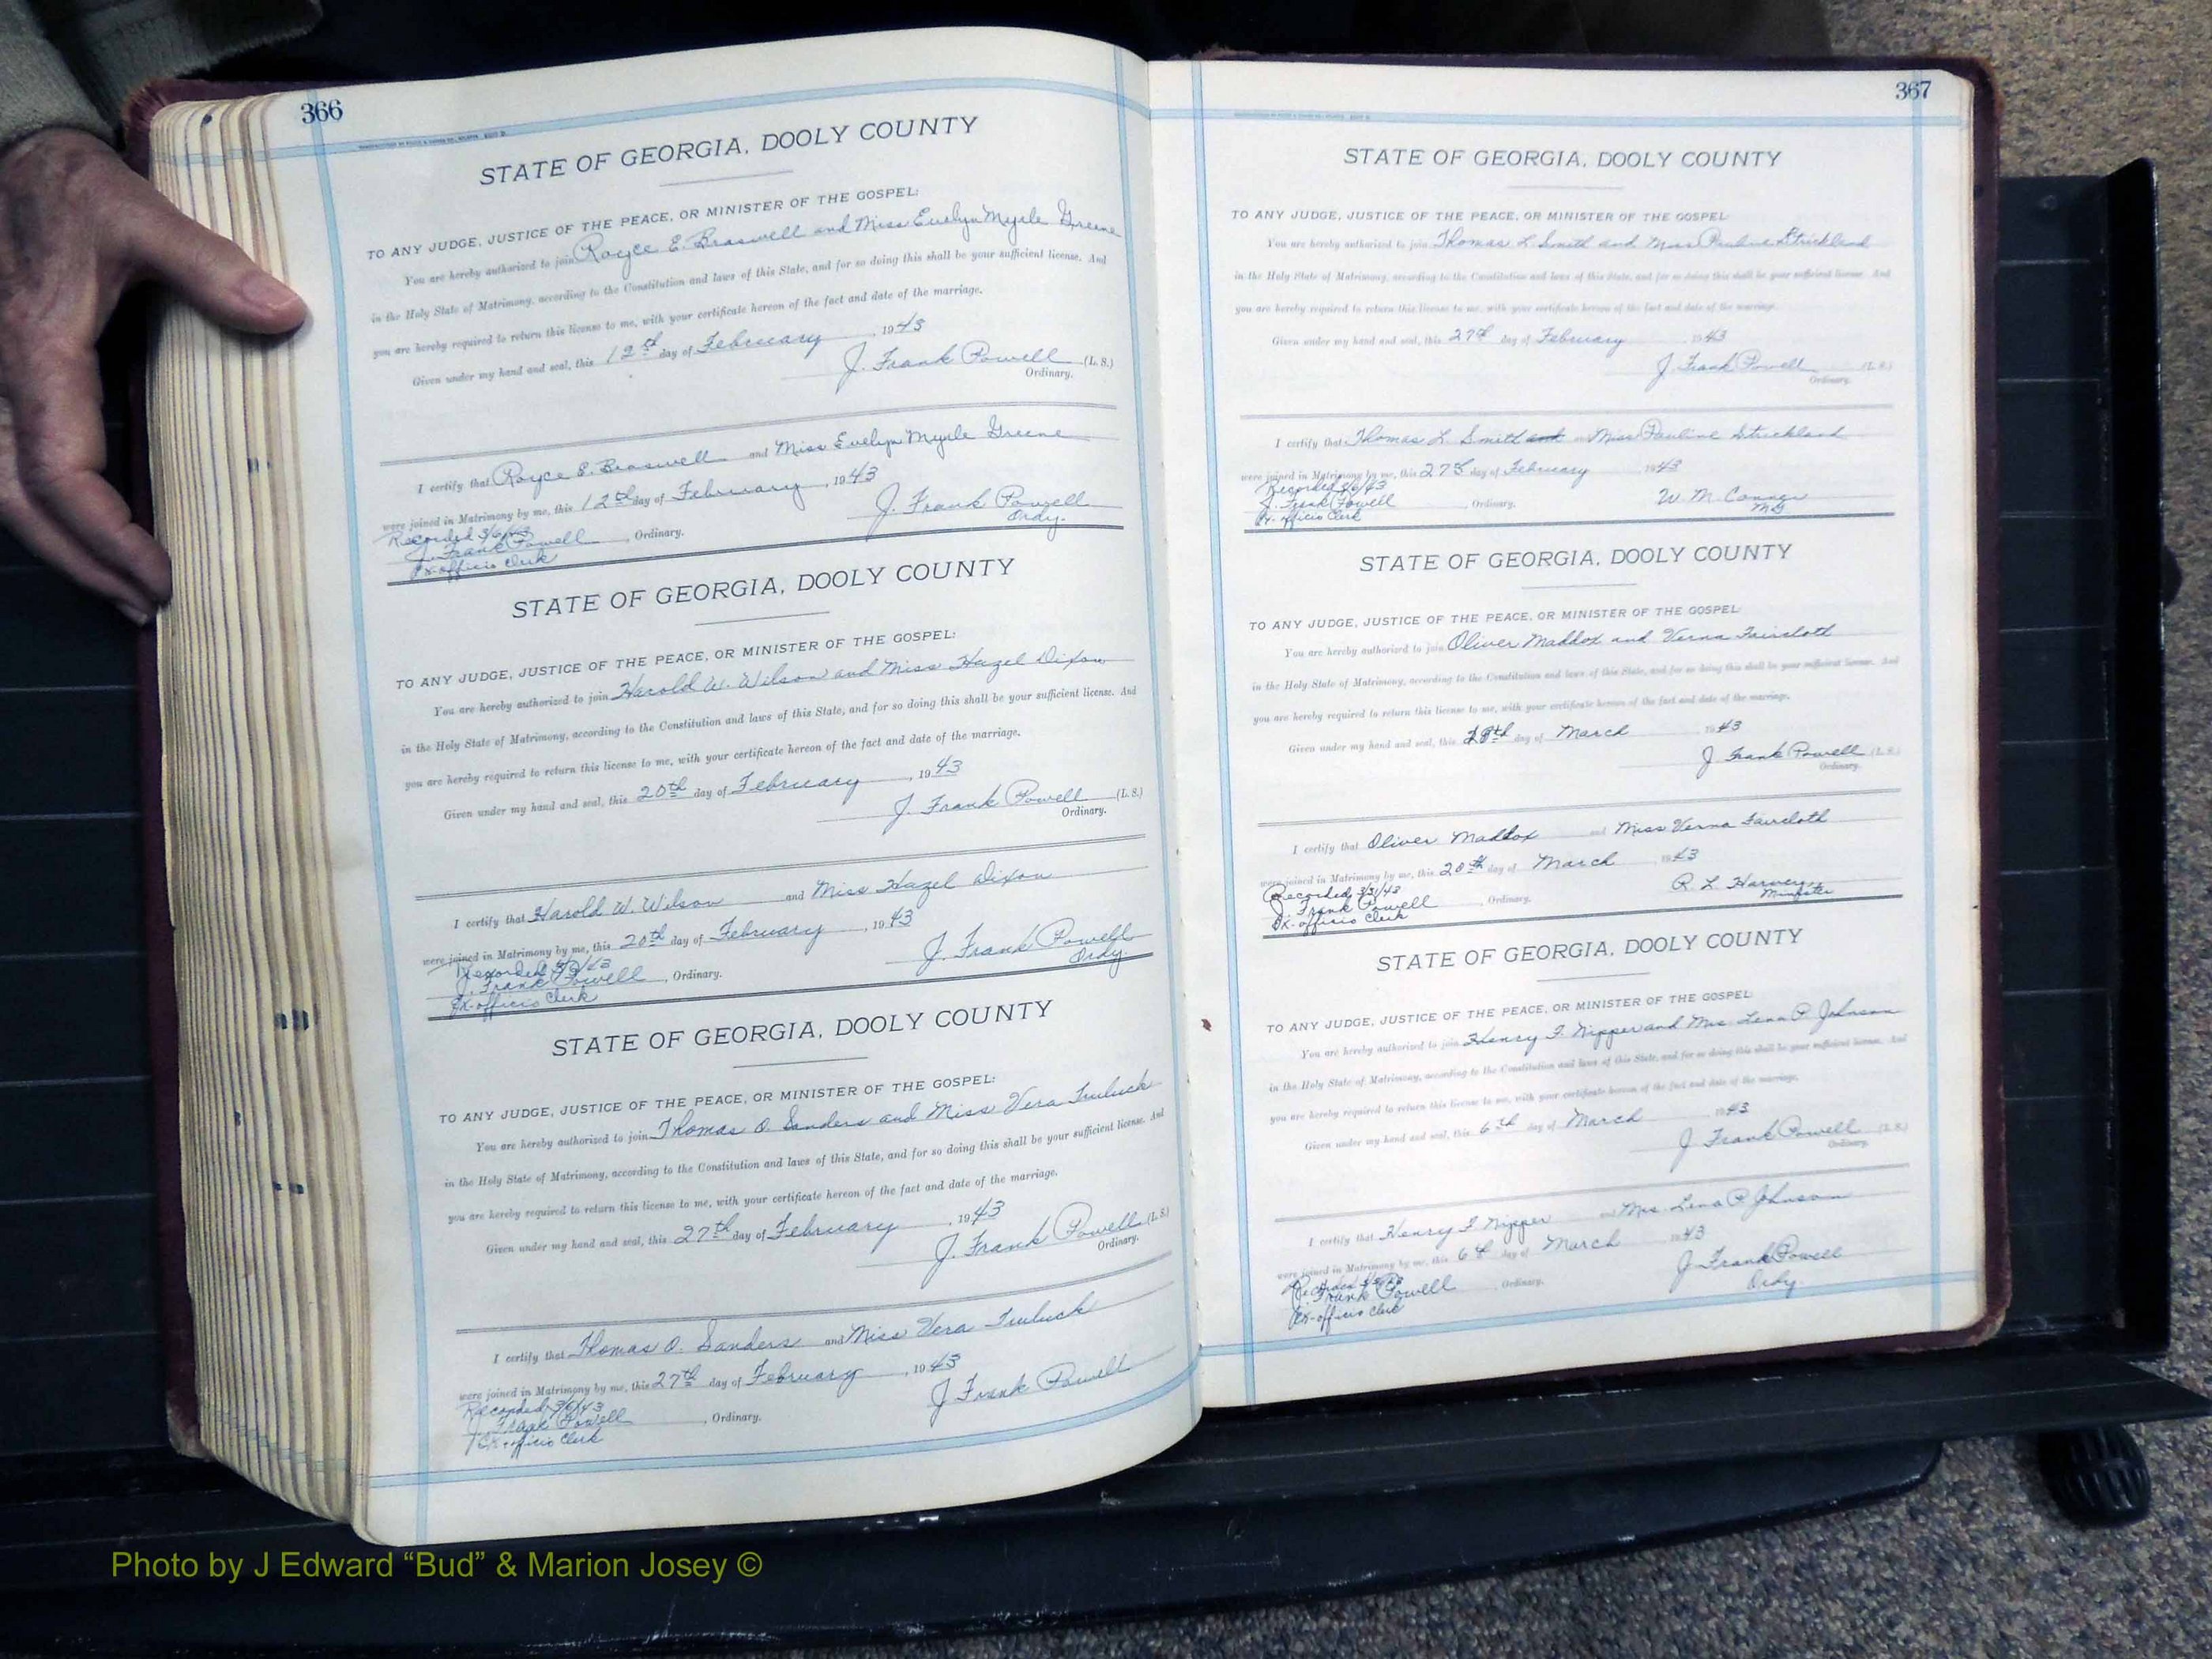 366
STATE OF GEORGIA, DOOLY COUNTY
TO ANY JUDGE, JUSTICE OF THE PEACE, OR MINISTER OF THE GOSPEL:
You are hereby authorized to join Royce E. Braswell and Miss Evelyn Myrle Greene
in the Holy State of Matrimony, according to the Constitution and laws of this State, and for so doing this shall be your sufficient license. And
you are hereby required to return this license to me, with your certificate hereon of the fact and date of the marriage.
Given under my hand and seal, this 12th day of February, 1943
J. Frank Powell (L. S.)
Ordinary.
I certify that Royce E. Braswell and Miss Evelyn Myrle Greene
were joined in Matrimony by me, this 12th day of February, 1943
J. Frank Powell
Ordy.
Recorded 3/6/43
J. Frank Powell, Ordinary.
Ex-officio Clerk
STATE OF GEORGIA, DOOLY COUNTY
TO ANY JUDGE, JUSTICE OF THE PEACE, OR MINISTER OF THE GOSPEL:
You are hereby authorized to join Harold W. Wilson and Miss Hazel Dixon
in the Holy State of Matrimony, according to the Constitution and laws of this State, and for so doing this shall be your sufficient license. And
you are hereby required to return this license to me, with your certificate hereon of the fact and date of the marriage.
Given under my hand and seal, this 20th day of February, 1943
J. Frank Powell (L. S.)
Ordinary.
I certify that Harold W. Wilson and Miss Hazel Dixon
were joined in Matrimony by me, this 20th day of February, 1943
J. Frank Powell
Ordy.
Recorded
J. Frank Powell, Ordinary.
Ex-officio Clerk
STATE OF GEORGIA, DOOLY COUNTY
TO ANY JUDGE, JUSTICE OF THE PEACE, OR MINISTER OF THE GOSPEL:
You are hereby authorized to join Thomas O. Sanders and Miss Vera Truluck
in the Holy State of Matrimony, according to the Constitution and laws of this State, and for so doing this shall be your sufficient license. And
you are hereby required to return this license to me, with your certificate hereon of the fact and date of the marriage.
Given under my hand and seal, this 27th day of February, 1943
J. Frank Powell (L. S.)
Ordinary.
I certify that Thomas O. Sanders and Miss Vera Truluck
were joined in Matrimony by me, this 27th day of February, 1943
J Frank Powell
Recorded 3/6/43
J. Frank Powell, Ordinary.
Ex-officio Clerk
367
STATE OF GEORGIA, DOOLY COUNTY
TO ANY JUDGE, JUSTICE OF THE PEACE, OR MINISTER OF THE GOSPEL:
You are hereby authorized to join Thomas L. Smith and Miss Pauline Strickland
in the Holy State of Matrimony, according to the Constitution and laws of this State, and for so doing this shall be your sufficient license. And
you are hereby required to return this license to me, with your certificate hereon of the fact and date of the marriage.
Given under my hand and seal, this 27th day of February 1943
J. Frank Powell (L. S.)
Ordinary.
I certify that Thomas L. Smith and Miss Pauline Strickland
were joined in Matrimony by me, this 27th day of February 1943
Recorded 3/6/43
W. M. Conner
MG
J. Frank Powell, Ordinary.
Ex-officio Clerk
STATE OF GEORGIA, DOOLY COUNTY
TO ANY JUDGE, JUSTICE OF THE PEACE, OR MINISTER OF THE GOSPEL:
You are hereby authorized to join Oliver Maddox and Verna Faircloth
in the Holy State of Matrimony, according to the Constitution and laws of this State, and for so doing this shall be your sufficient license. And
you are hereby required to return this license to me, with your certificate hereon of the fact and date of the marriage.
Given under my hand and seal, this day of March 1943
J Frank Powell (L. S.)
Ordinary.
I certify that Oliver Maddox and Miss Verna Faircloth
were joined in Matrimony by me, this 20th day of March 1943
Recorded 3/31/43
R. L. Harvey,
Minister
J. Frank Powell, Ordinary.
Ex-officio Clerk
STATE OF GEORGIA, DOOLY COUNTY
TO ANY JUDGE, JUSTICE OF THE PEACE, OR MINISTER OF THE GOSPEL:
You are hereby authorized to join Henry F. Nipper and Mrs Lena P. Johnson
in the Holy State of Matrimony, according to the Constitution and laws of this State, and for so doing this shall be your sufficient license. And
you are hereby required to return this license to me, with your certificate hereon of the fact and date of the marriage.
Given under my hand and seal, this 6th day of March 1943
J Frank Powell (L. S.)
Ordinary.
I certify that Henry F. Nipper and Mrs Lena P. Johnson
were joined in Matrimony by me, this 6th day of March 1943
J Frank Powell
Ordy.
Recorded
J. Frank Powell Ordinary.
Ex-officio Clerk
Photo by J Edward “Bud” & Marion Josey ©